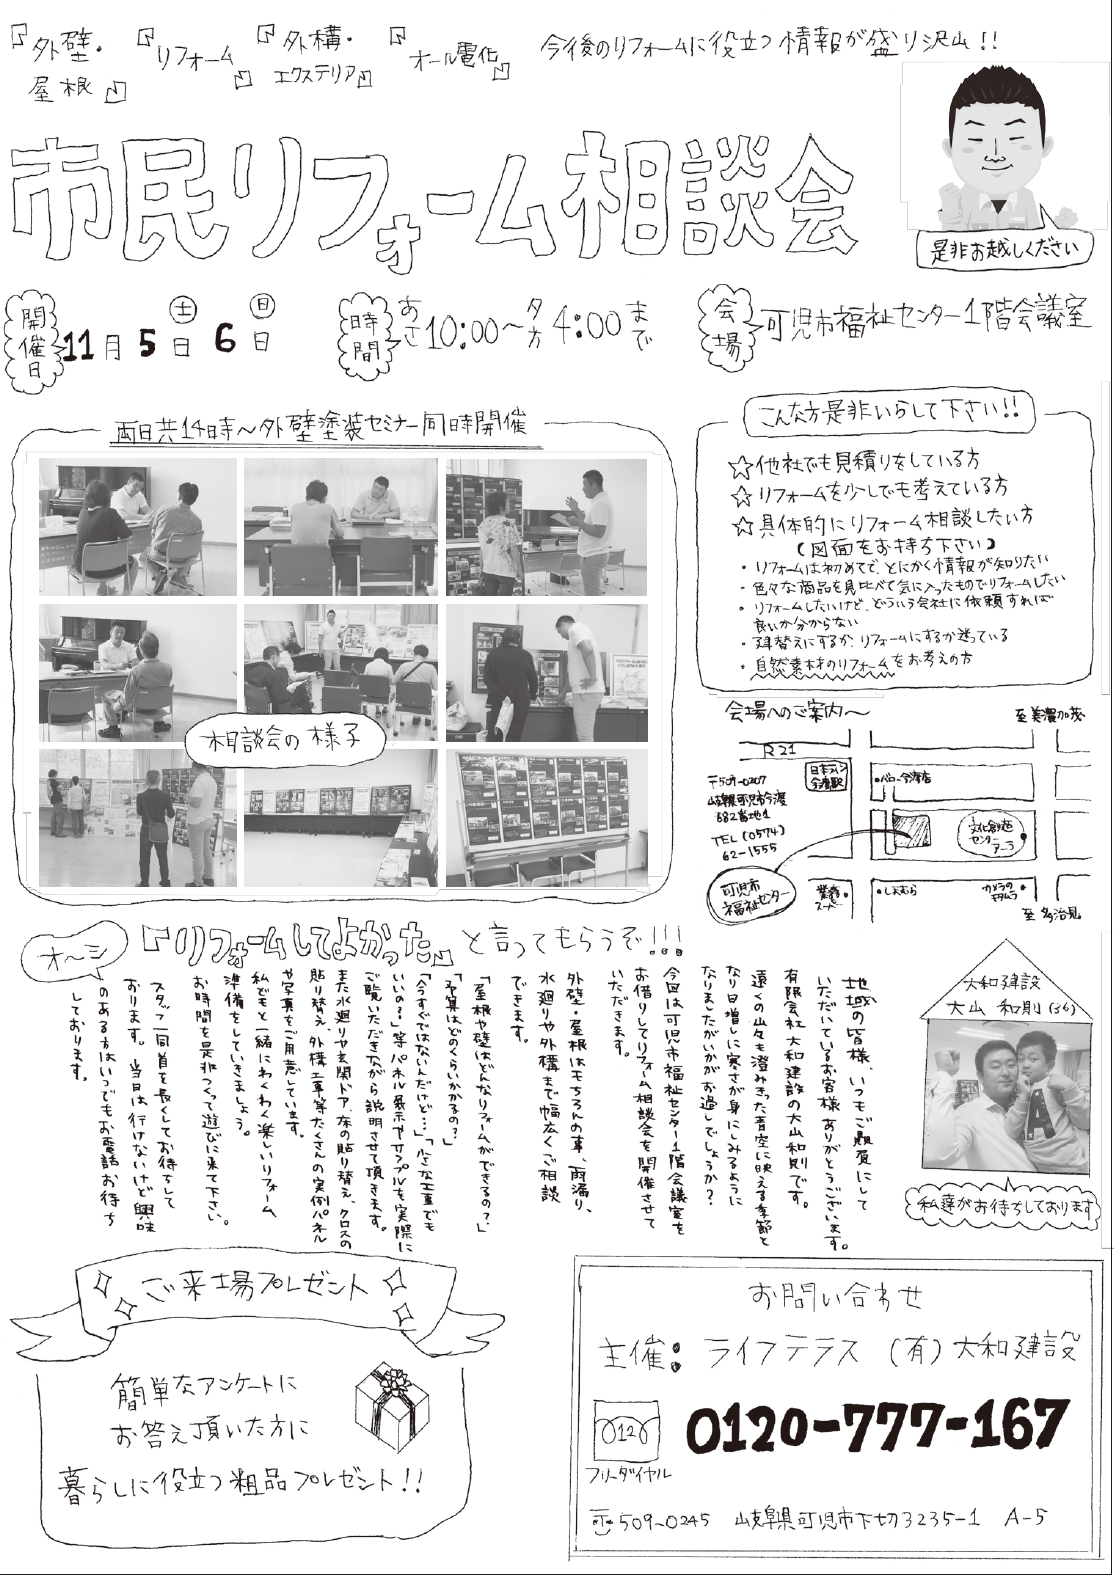 『外壁・屋根』
『リフォーム』
『外構・エクステリア』
『オール電化』
今後のリフォームに役立つ情報が盛り沢山!!
市民リフォーム相談会
是非お越しください
開催日
11月5日㊏6日㊐
時間
あさ10:00〜夕方4:00まで
会場
可児市福祉センター1階会議室
両日共14時〜外壁塗装セミナー同時開催
相談会の様子
こんな方是非いらして下さい!!
☆他社でも見積りをしている方
☆リフォームを少しでも考えている方
☆具体的にリフォーム相談したい方
(図面をお持ち下さい)
・リフォームは初めてで、とにかく情報が知りたい
・色々な商品を見比べて気に入ったものでリフォームしたい
・リフォームしたいけど、どういう会社に依頼すれば
良いか分からない
・建替えにするか、リフォームにするか迷っている
・自然素材のリフォームをお考えの方
会場へのご案内〜
至美濃加茂
R21
日本ライン
今渡駅
・バロー今渡店
〒509-0207
岐阜県可児市今渡
682番地1
TEL(0574)
62-1555
文化創造
センター
アーラ
可児市
福祉センター
業務
スーパー
・しおむら
カメラの
キタムラ
至多治見
オ〜シ
『リフォームしてよかった』と言ってもらうぞ!!!
地域の皆様、いつもご贔屓にして
いただいているお客様ありがとうございます。
有限会社大和建設の大山和則です。
遠くの山々も澄みきった青空に映える季節と
なり日増しに寒さが身にしみるように
なりましたがいかがお過しでしょうか?
今回は可児市福祉センター1階会議室を
お借りしてリフォーム相談会を開催させて
いただきます。
外壁・屋根はもちろんの事、雨漏り、
水廻りや外構まで幅広くご相談
できます。
「屋根や壁はどんなリフォームができるの?」
「予算はどのくらいかかるの?」
「今すぐではないんだけど…」「小さな工事でも
いいの?」等パネル展示やサンプルを実際に
ご覧いただきながら説明させて頂きます。
また水廻りや玄関ドア、床の貼り替え、クロスの
貼り替え、外構工事等たくさんの実例パネル
や写真をご用意しています。
私どもと一緒にわくわく楽しいリフォーム
準備をしていきましょう。
お時間を是非つくって遊びに来て下さい。
スタッフ一同首を長くしてお待ちして
おります。当日は行けないけど興味
のある方はいつでもお電話お待ち
しております。
大和建設
大山 和則(36)
私達がお待ちしております
ご来場プレゼント
簡単なアンケートに
お答え頂いた方に
暮らしに役立つ粗品プレゼント!!
お問い合わせ
主催:ライフテラス (有)大和建設
フリーダイヤル
0120-777-167
〒509-0245 岐阜県可児市下切3235-1 A-5